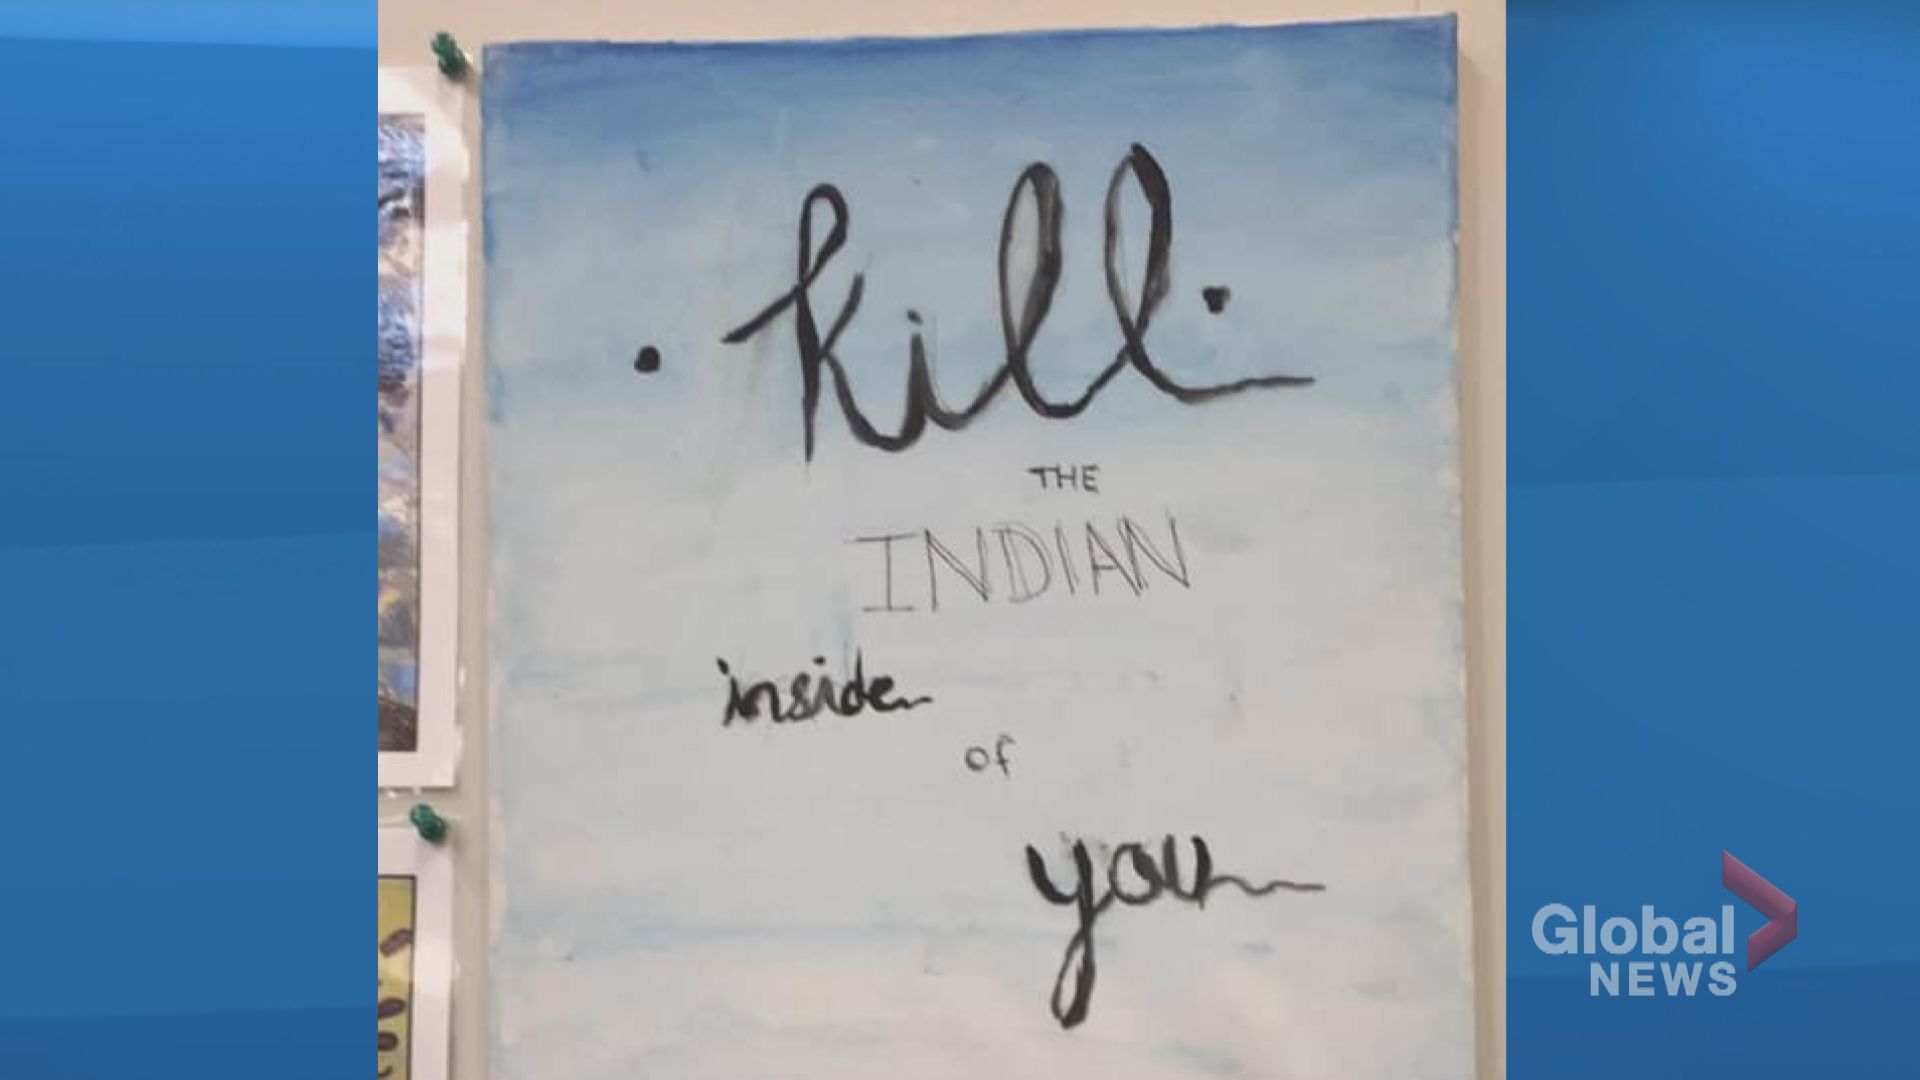 kill
THE
INDIAN
inside
of
you
Global
NEWS